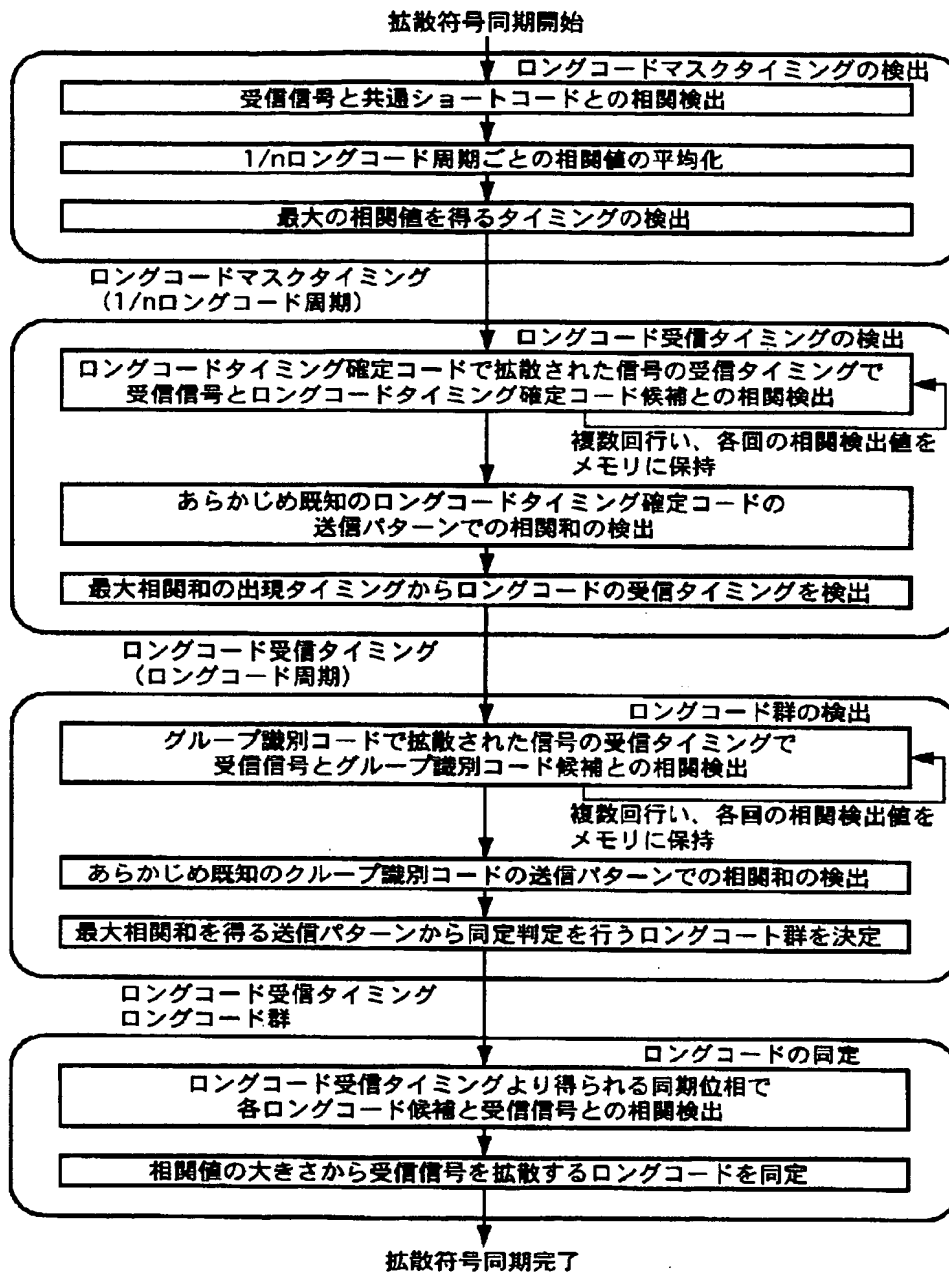 拡散符号同期開始
ロングコードマスクタイミングの検出
受信信号と共通ショートコードとの相関検出
1/nロングコード周期ごとの相関値の平均化
最大の相関値を得るタイミングの検出
ロングコードマスクタイミング
(1/nロングコード周期)
ロングコード受信タイミングの検出
ロングコードタイミング確定コードで拡散された信号の受信タイミングで
受信信号とロングコードタイミング確定コード候補との相関検出
複数回行い、各回の相関検出値を
メモリに保持
あらかじめ既知のロングコードタイミング確定コードの
送信パターンでの相関和の検出
最大相関和の出現タイミングからロングコードの受信タイミングを検出
ロングコード受信タイミング
(ロングコード周期)
ロングコード群の検出
グループ識別コードで拡散された信号の受信タイミングで
受信信号とグループ識別コード候補との相関検出
複数回行い、各回の相関検出値を
メモリに保持
あらかじめ既知のクループ識別コードの送信パターンでの相関和の検出
最大相関和を得る送信パターンから同定判定を行うロングコート群を決定
ロングコード受信タイミング
ロングコード群
ロングコードの同定
ロングコード受信タイミングより得られる同期位相で
各ロングコード候補と受信信号との相関検出
相関値の大きさから受信信号を拡散するロングコードを同定
拡散符号同期完了